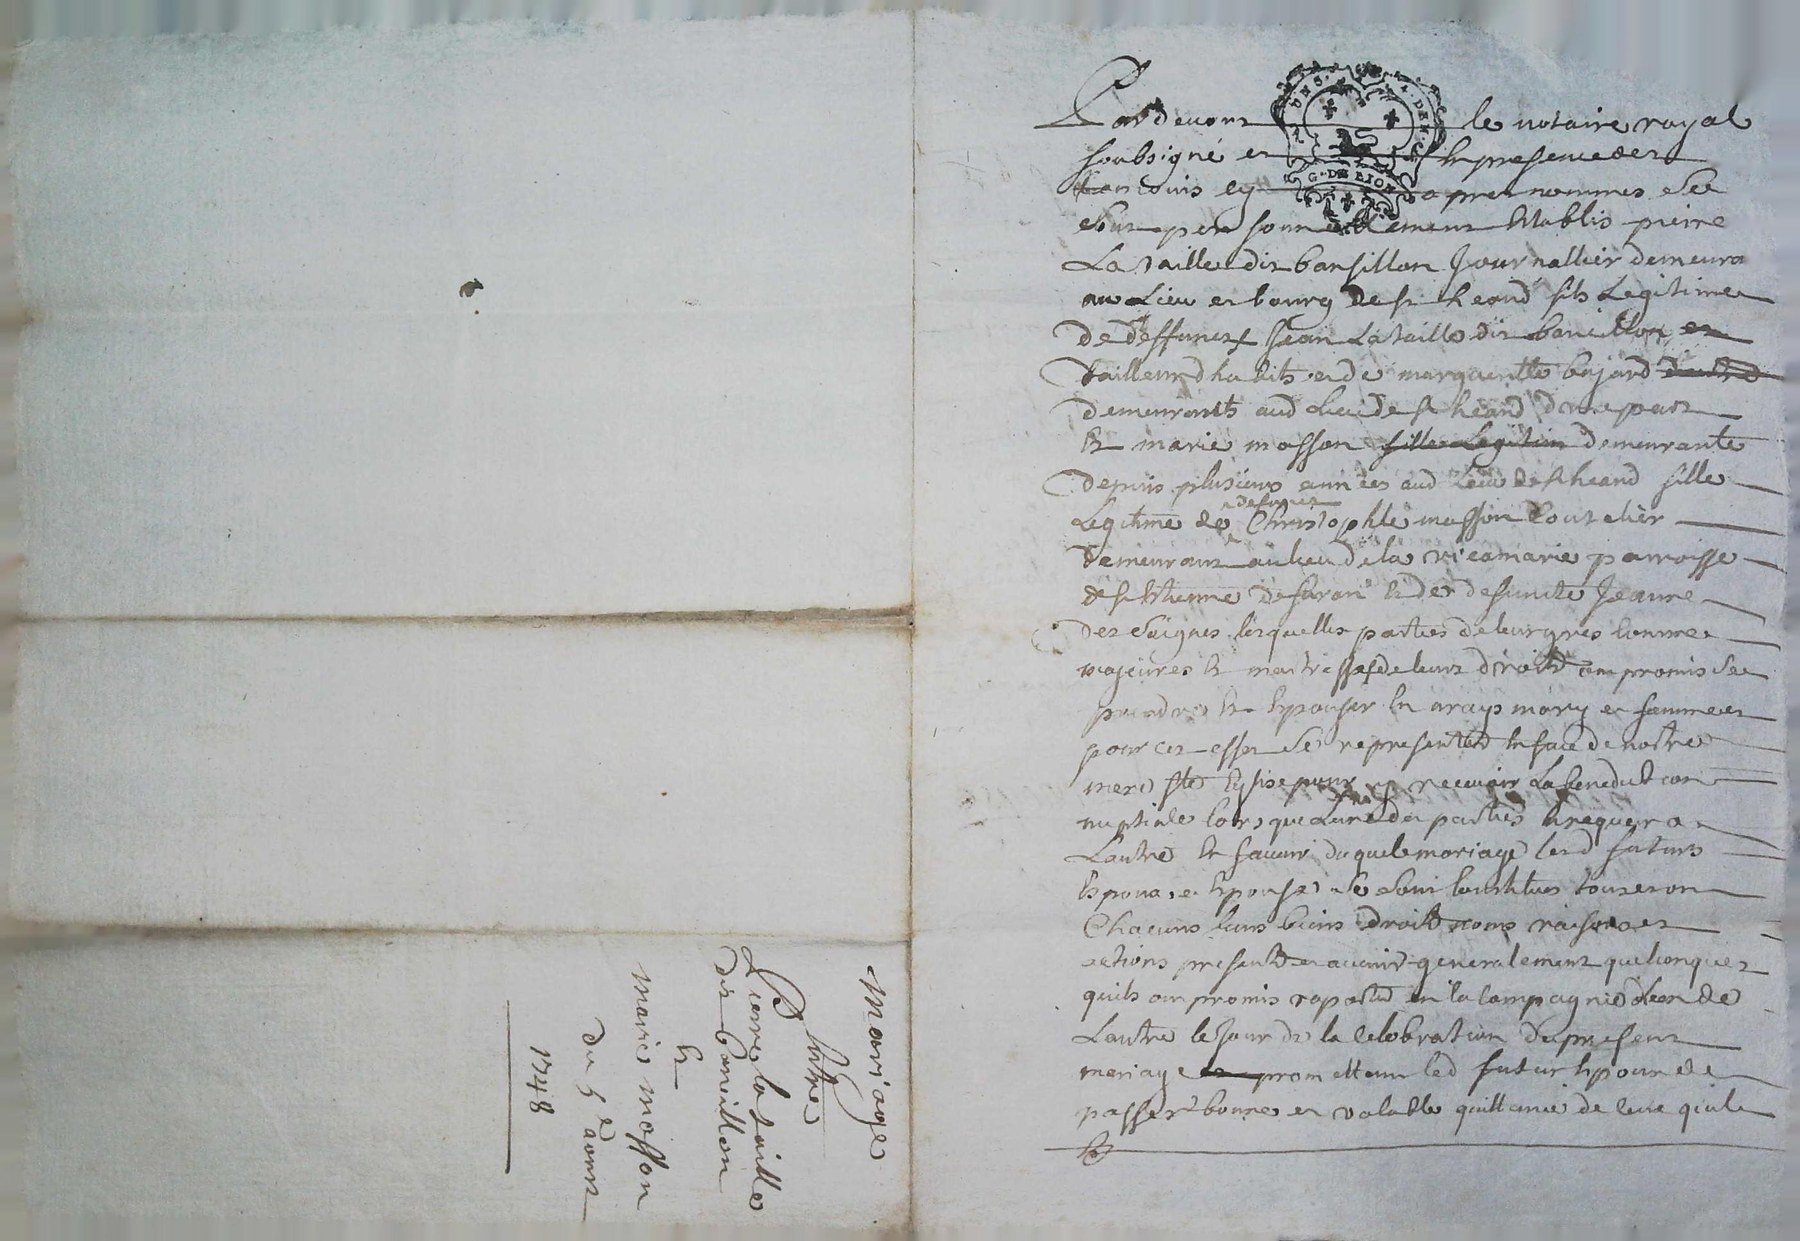 Pardevant le notaire royal
soubsigné et en presence des
tesmoins cy apres nommes se
sont personnellement establis pierre
La taille dit bansillon Journallier demeura
au Lieu et bourg de st heand fils Legitime
de deffunct Jean La taille dit bancillon et
tailleur d habits et de margueritte bajard
demeurants aud Lieu de st heand d une part
Et marie masson fille Legitim demeurante
depuis plusieurs années aud Lieu de st heand fille
defunct
Legitime de Christophle masson Coutelier
demeurant au lieu de la ricamarie parroisse
de st Etienne de furan & de defuncte Jeanne
des Soignes lesquelles parties de leur gres comme
majeures & maitresses de leurs droits ont promis se
prendre & Epouser En vrays mary et femme et
pour cet effet se representer En face de nostre
mere ste Eglise pour y recevoir La benediction
nuptiale lors que Lune des parties En requera
Lautre En faveur duquel mariage lesd futurs
Epoux et Epouse se sont Constitues tous et un
Chacuns leurs biens droits noms raisons et
actions presents et avenir generalement quelconques
quils ont promis raporter en la Compagnie Lun de
Lautre le Jour de la Celebration du present
mariage et promettant led futur Epoux de
passer bonne et valable quittance de tout ce quil
G. DE LION
Mariage
Entre
Pierre la taille
dit bancillon
Et
marie masson
du 5e aoust
1748